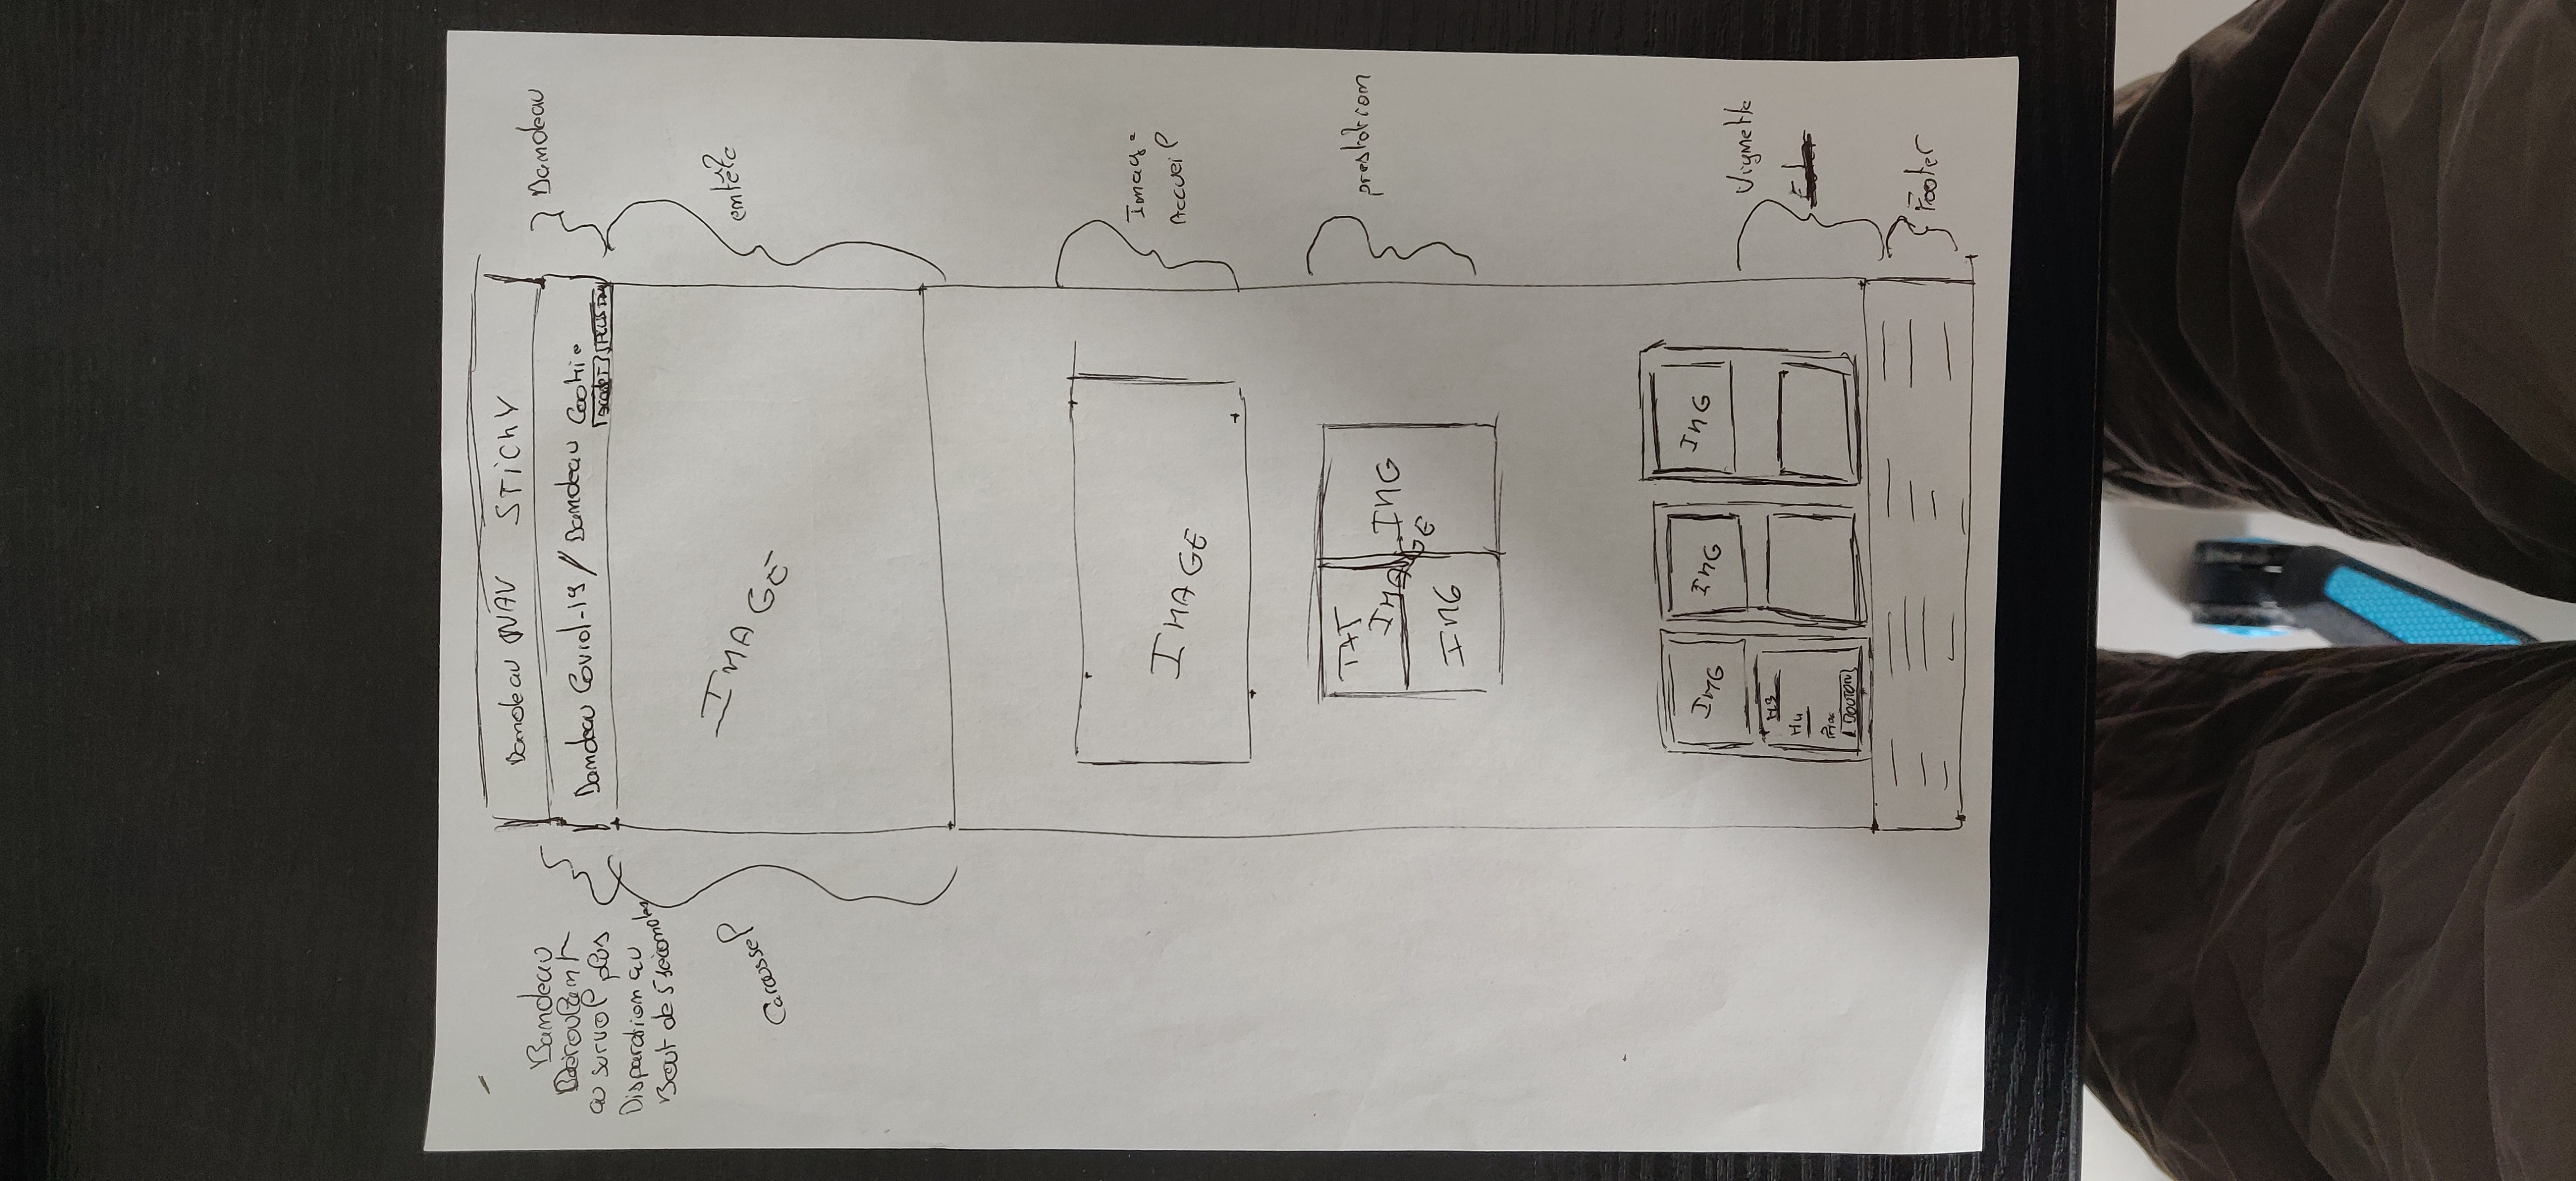 Bandeau NAV STICKY
Bandeau
Déroulant
au survol plus
Disparation au
Bout de 5 secondes
Bandeau
Bandeau Covid-19 / Bandeau Cookie
IMAGE
Caroussel
entête
IMAGE
Image
Accueil
TXT
IMAGE
IMG
IMG
prestation
IMG
IMG
IMG
H3
H4
BOUTON
Vignette
Footer